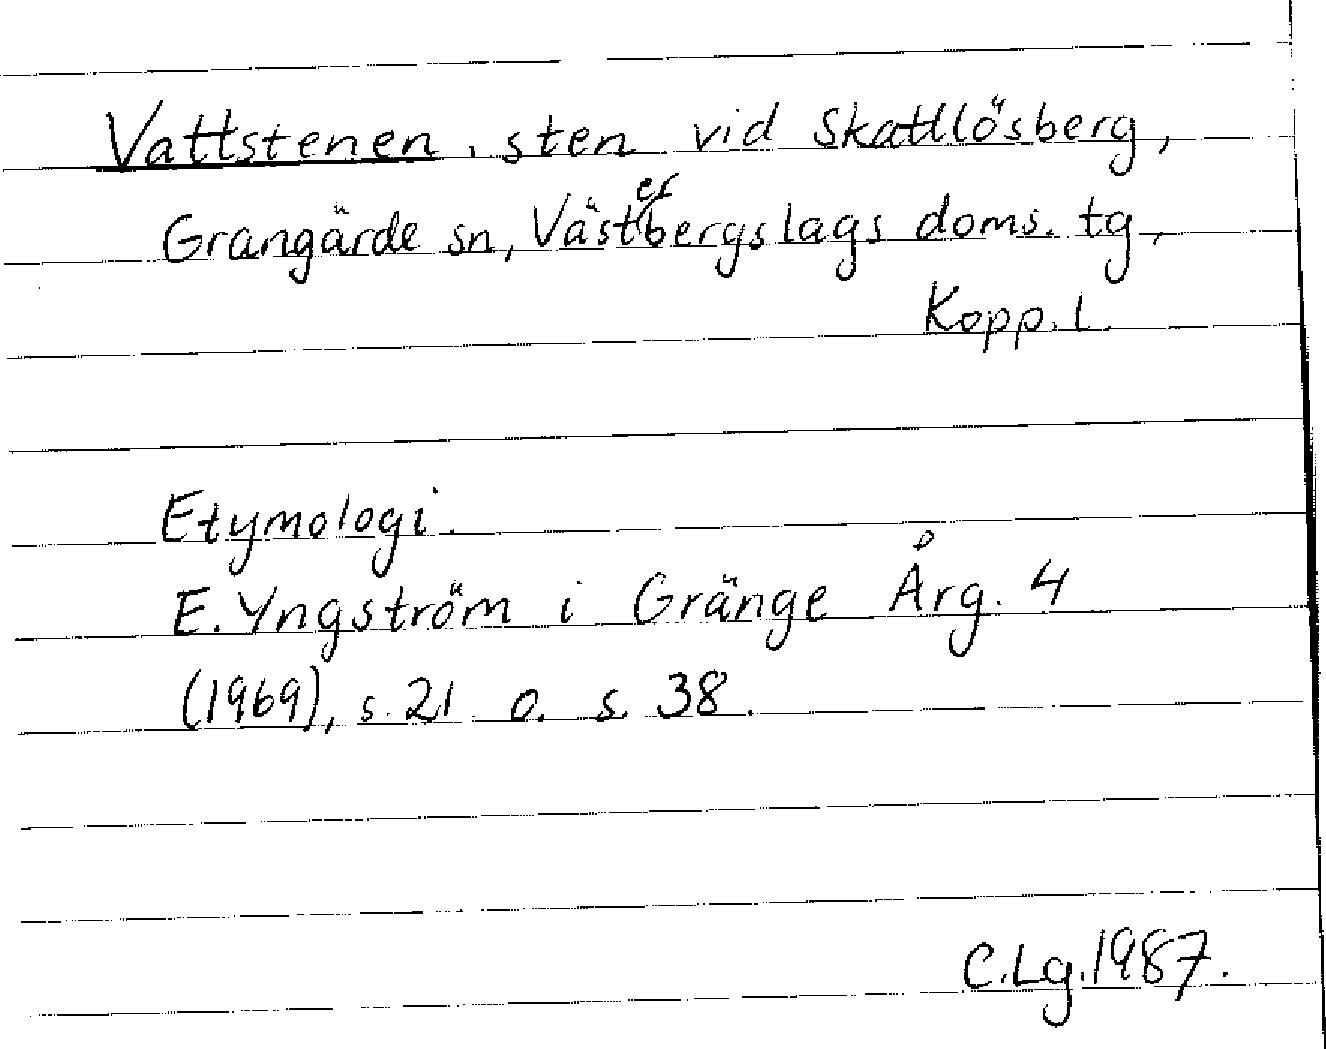 Vattstenen, sten vid Skattlösberg,
Grangärde sn, Västerbergslags doms. tg,
Kopp. l.
Etymologi.
E. Yngström i Gränge Årg. 4
(1969), s. 21 o. s. 38.
C.Lg.1987.